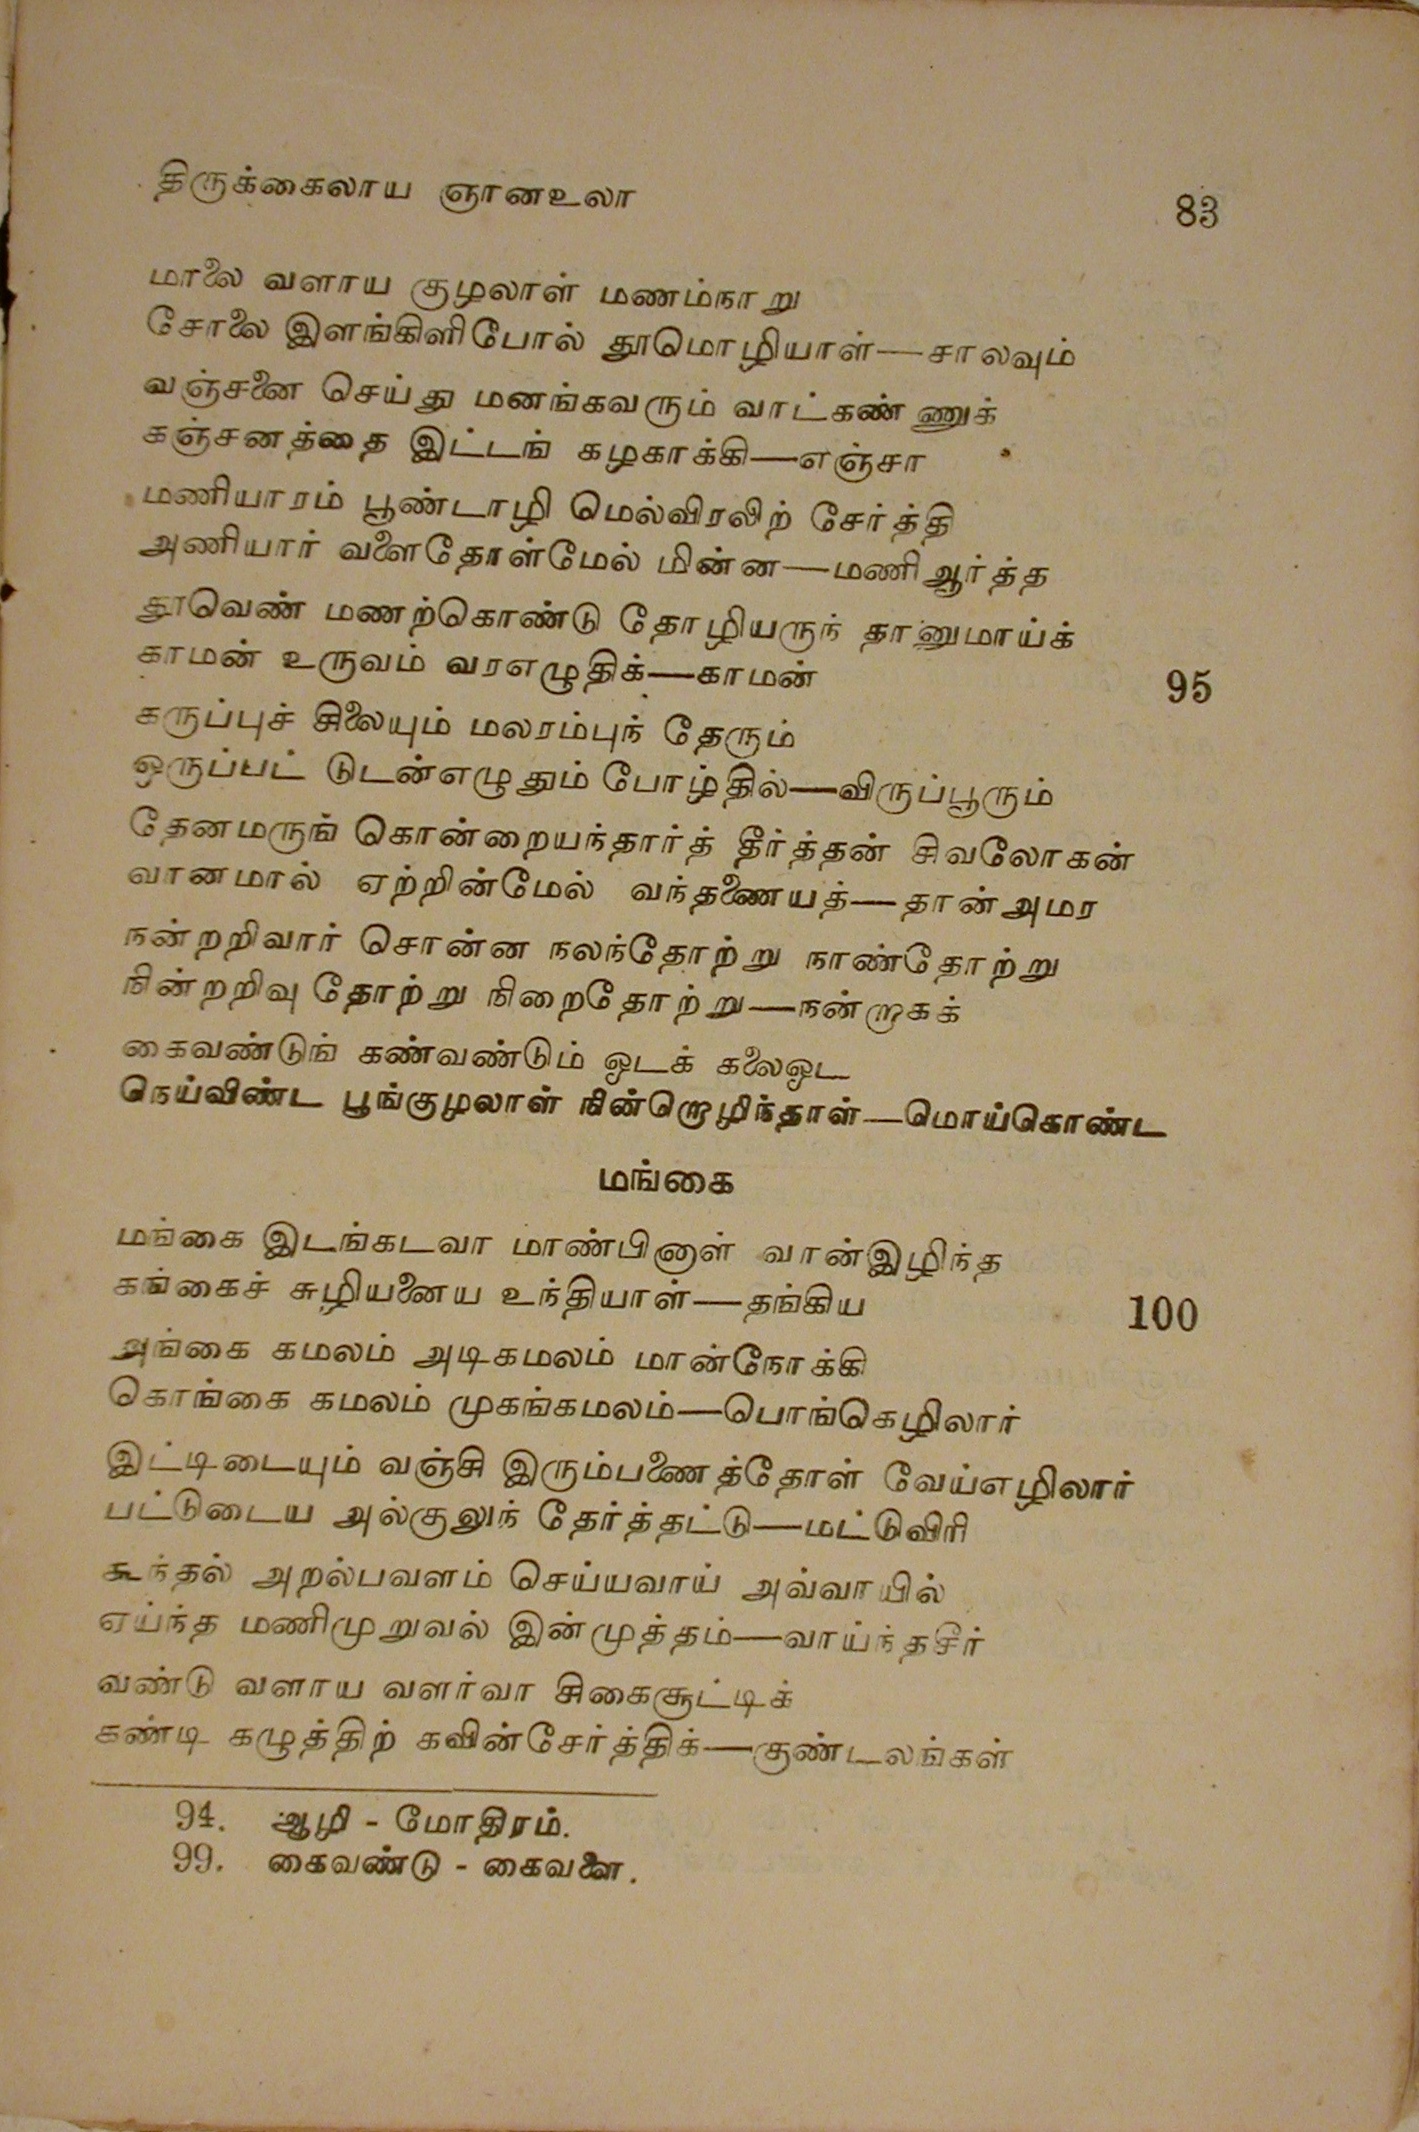 திருக்கைலாய ஞானஉலா 83
மாலை வளாய குழலாள் மணம்நாறு
சோலை இளங்கிளிபோல் தூமொழியாள்—சாலவும்
வஞ்சனை செய்து மனங்கவரும் வாட்கண் ணுக்
கஞ்சனத்தை இட்டங் கழகாக்கி—எஞ்சா
மணியாரம் பூண்டாழி மெல்விரலிற் சேர்த்தி
அணியார் வளைதோள்மேல் மின்ன—மணிஆர்த்த
தூவெண் மணற்கொண்டு தோழியருந் தானுமாய்க்
காமன் உருவம் வரஎழுதிக்—காமன் 95
கருப்புச் சிலையும் மலரம்புந் தேரும்
ஒருப்பட் டுடன்எழுதும் போழ்தில்—விருப்பூரும்
தேனமருங் கொன்றையந்தார்த் தீர்த்தன் சிவலோகன்
வானமால் ஏற்றின்மேல் வந்தணையத்—தான்அமர
நன்றறிவார் சொன்ன நலந்தோற்று நாண்தோற்று
நின்றறிவு தோற்று நிறைதோற்று—நன்றாகக்
கைவண்டுங் கண்வண்டும் ஓடக் கலைஓட
நெய்விண்ட பூங்குழலாள் நின்றொழிந்தாள்—மொய்கொண்ட
மங்கை
மங்கை இடங்கடவா மாண்பினாள் வான்இழிந்த
கங்கைச் சுழியனைய உந்தியாள்—தங்கிய 100
அங்கை கமலம் அடிகமலம் மான்நோக்கி
கொங்கை கமலம் முகங்கமலம்—பொங்கெழிலார்
இட்டிடையும் வஞ்சி இரும்பணைத்தோள் வேய்எழிலார்
பட்டுடைய அல்குலுந் தேர்த்தட்டு—மட்டுவிரி
கூந்தல் அறல்பவளம் செய்யவாய் அவ்வாயில்
ஏய்ந்த மணிமுறுவல் இன்முத்தம்—வாய்ந்தசீர்
வண்டு வளாய வளர்வா சிகைசூட்டிக்
கண்டி கழுத்திற் கவின்சேர்த்திக்—குண்டலங்கள்
94. ஆழி - மோதிரம்.
99. கைவண்டு - கைவளை.